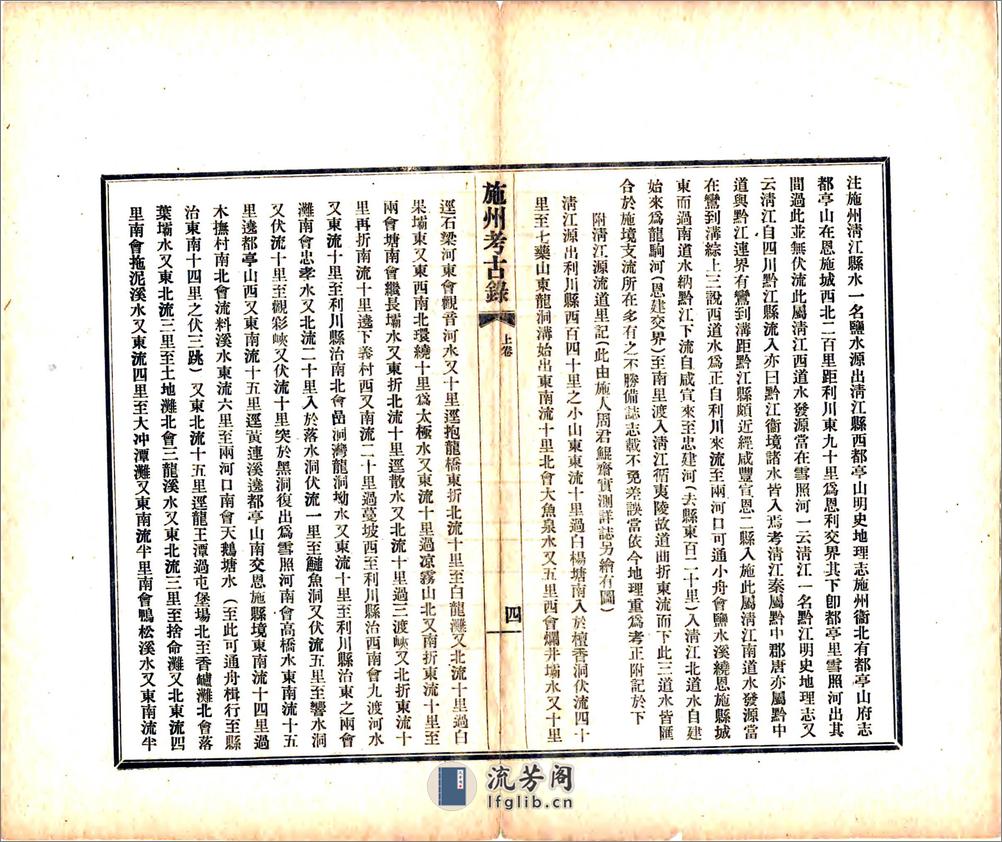 注施州清江縣水一名鹽水源出清江縣西都亭山明史地理志施州衞北有都亭山府志
都亭山在恩施城西北二百里距利川東九十里爲恩利交界其下卽都亭里雪照河出其
間過此並無伏流此屬清江西道水發源當在雪照河一云清江一名黔江明史地理志又
云清江自四川黔江縣流入亦曰黔江衞境諸水皆入焉考清江秦屬黔中郡唐亦屬黔中
道與黔江連界有鸞到溝距黔江縣頗近經咸豐宣恩二縣入施此屬清江南道水發源當
在鸞到溝綜上三說西道水爲正自利川來流至兩河口可通小舟會鹽水溪繞恩施縣城
東而過南道水納黔江下流自咸宣來至忠建河(去縣東百二十里)入清江北道水自建
始來爲龍駒河(恩建交界)至南里渡入清江衝夷陵故道曲折東流而下此三道水皆匯
合於施境支流所在多有之不勝備誌志載不免差誤當依今地理重爲考正附記於下
附清江源流道里記(此由施人周君鯤齋實測詳誌另繪有圖)
清江源出利川縣西百四十里之小山東東流十里過白楊塘南入於檀香洞伏流四十
里至七藥山東龍洞溝始出東南流十里北會大魚泉水又五里西會爛井壩水又十里
施州考古錄
上卷
四
逕石梁河東會觀音河水又十里逕抱龍橋東折北流十里至白龍灘又北流十里過白
果壩東又東西南北環繞十里爲太極水又東流十里過凉霧山北又南折東流十里至
兩會塘南會繼長壩水又東折北流十里逕散水又北流十里過三渡峽又北折東流十
里再折南流十里遶下義村西又南流二十里過墓坡西至利川縣治西南會九渡河水
又東流十里至利川縣治南北會嵒洞灣龍洞坳水又東流十里至利川縣治東之兩會
灘南會忠孝水又北流二十里入於落水洞伏流一里至鰱魚洞又伏流五里至響水洞
又伏流十里至觀彩峽又伏流十里突於黑洞復出爲雪照河南會高橋水東南流十五
里遶都亭山西又東南流十五里逕黃連溪遶都亭山南交恩施縣境東南流十四里過
木撫村南北會流料溪水東流六里至兩河口南會天鵝塘水(至此可通舟楫行至縣
治東南十四里之伏三跳)又東北流十五里逕龍王潭過屯堡場北至香爐灘北會落
葉壩水又東北流三里至土地灘北會三龍溪水又東北流三里至捨命灘又北東流四
里南會拖泥溪水又東流四里至大冲潭灘又東南流半里南會鴨松溪水又東南流半
流芳阁
lfglib.cn